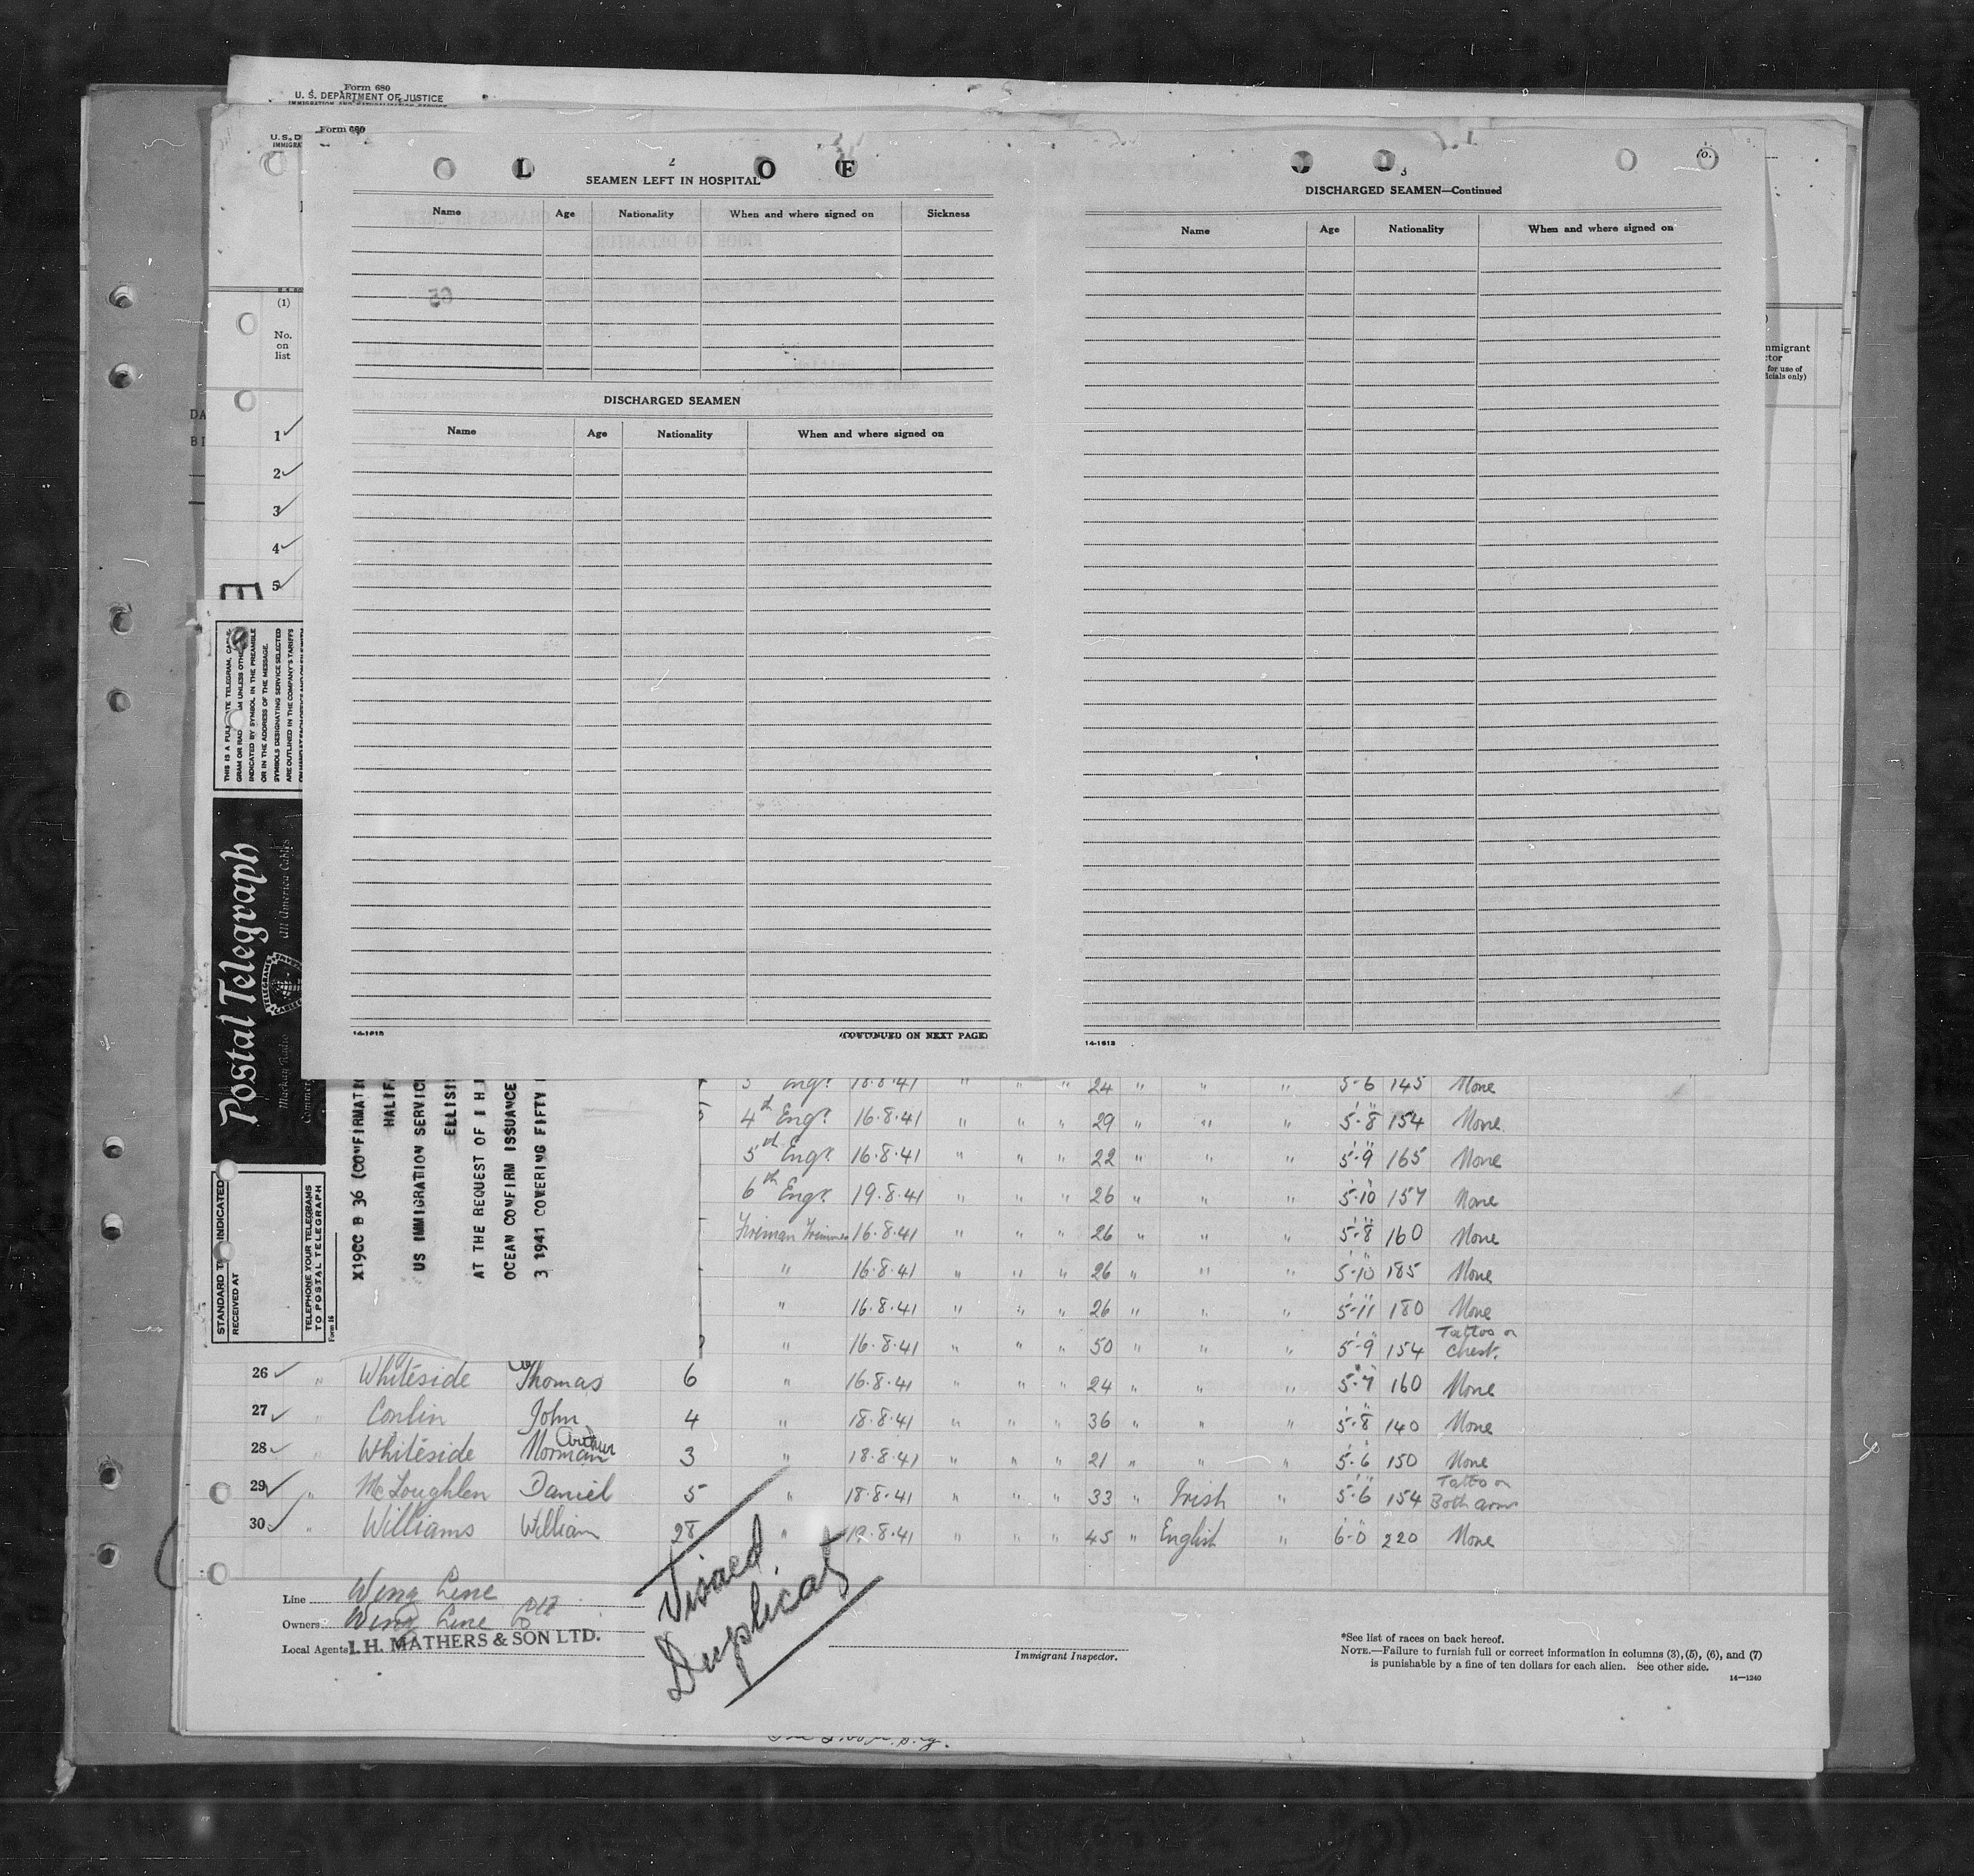 Form 680
U. S. DEPARTMENT OF JUSTICE
IMMIGRATION AND NATURALIZATION SERVICE
Form 680
U. S. D
IMMIGRA
L O F
2
SEAMEN LEFT IN HOSPITAL
Name Age Nationality When and where signed on Sickness
DISCHARGED SEAMEN
Name Age Nationality When and where signed on
14-1613
(CONTINUED ON NEXT PAGE)
3
DISCHARGED SEAMEN—Continued
Name Age Nationality When and where signed on
14-1613
(1)
No.
on
list
DA
BI
1
2
3
4
5
mmigrant
ctor
for use of
icials only)
THIS IS A FULL RATE TELEGRAM, CABLE-
GRAM OR RAD AM UNLESS OTHE
INDICATED BY SYMBOL IN THE PREAMBLE
OR IN THE ADDRESS OF THE MESSAGE.
SYMBOLS DESIGNATING SERVICE SELECTED
ARE OUTLINED IN THE COMPANY'S TARIFFS
Postal Telegraph
Mackay Radio
All America Cables
Commer
STANDARD T INDICATED
RECEIVED AT
TELEPHONE YOUR TELEGRAMS
TO POSTAL TELEGRAPH
Form 16
X19CC B 36 (CONFIRMATIO
HALIF
US IMMIGRATION SERVIC
ELLIS
AT THE REQUEST OF I H
OCEAN CONFIRM ISSUANCE
3 1941 COVERING FIFTY
Engr. 18.8.41 " " " 24 " " " 5-6 145 None
4th Engr. 16.8.41 " " " 29 " " " 5-8 154 None
5th Engr. 16.8.41 " " " 22 " " " 5-9 165 None
6th Engr. 19.8.41 " " " 26 " " " 5-10 157 None
Fireman Trimmer 16.8.41 " " " 26 " " " 5-8 160 None
" 16.8.41 " " " 26 " " " 5-10 185 None
" 16.8.41 " " " 26 " " " 5-11 180 None
" 16.8.41 " " " 50 " " " 5-9 154 Tattoo on Chest.
26 " Whiteside Thomas 6 " 16.8.41 " " " 24 " " " 5-7 160 None
27 " Conlin John 4 " 18.8.41 " " " 36 " " " 5-8 140 None
28 " Whiteside Norman Arthur 3 " 18.8.41 " " " 21 " " " 5-6 150 None
29 " McLoughlen Daniel 5 " 18.8.41 " " " 33 " Irish " 5-6 154 Tattoo on Both arms
30 " Williams William 28 " 19.8.41 " " " 45 " English " 6-0 220 None
Visaed
Duplicat
Line Weng Line
Owners Weng Line Co
Local Agents I. H. MATHERS & SON LTD.
Immigrant Inspector.
*See list of races on back hereof.
NOTE.—Failure to furnish full or correct information in columns (3), (5), (6), and (7)
is punishable by a fine of ten dollars for each alien. See other side.
14—1240